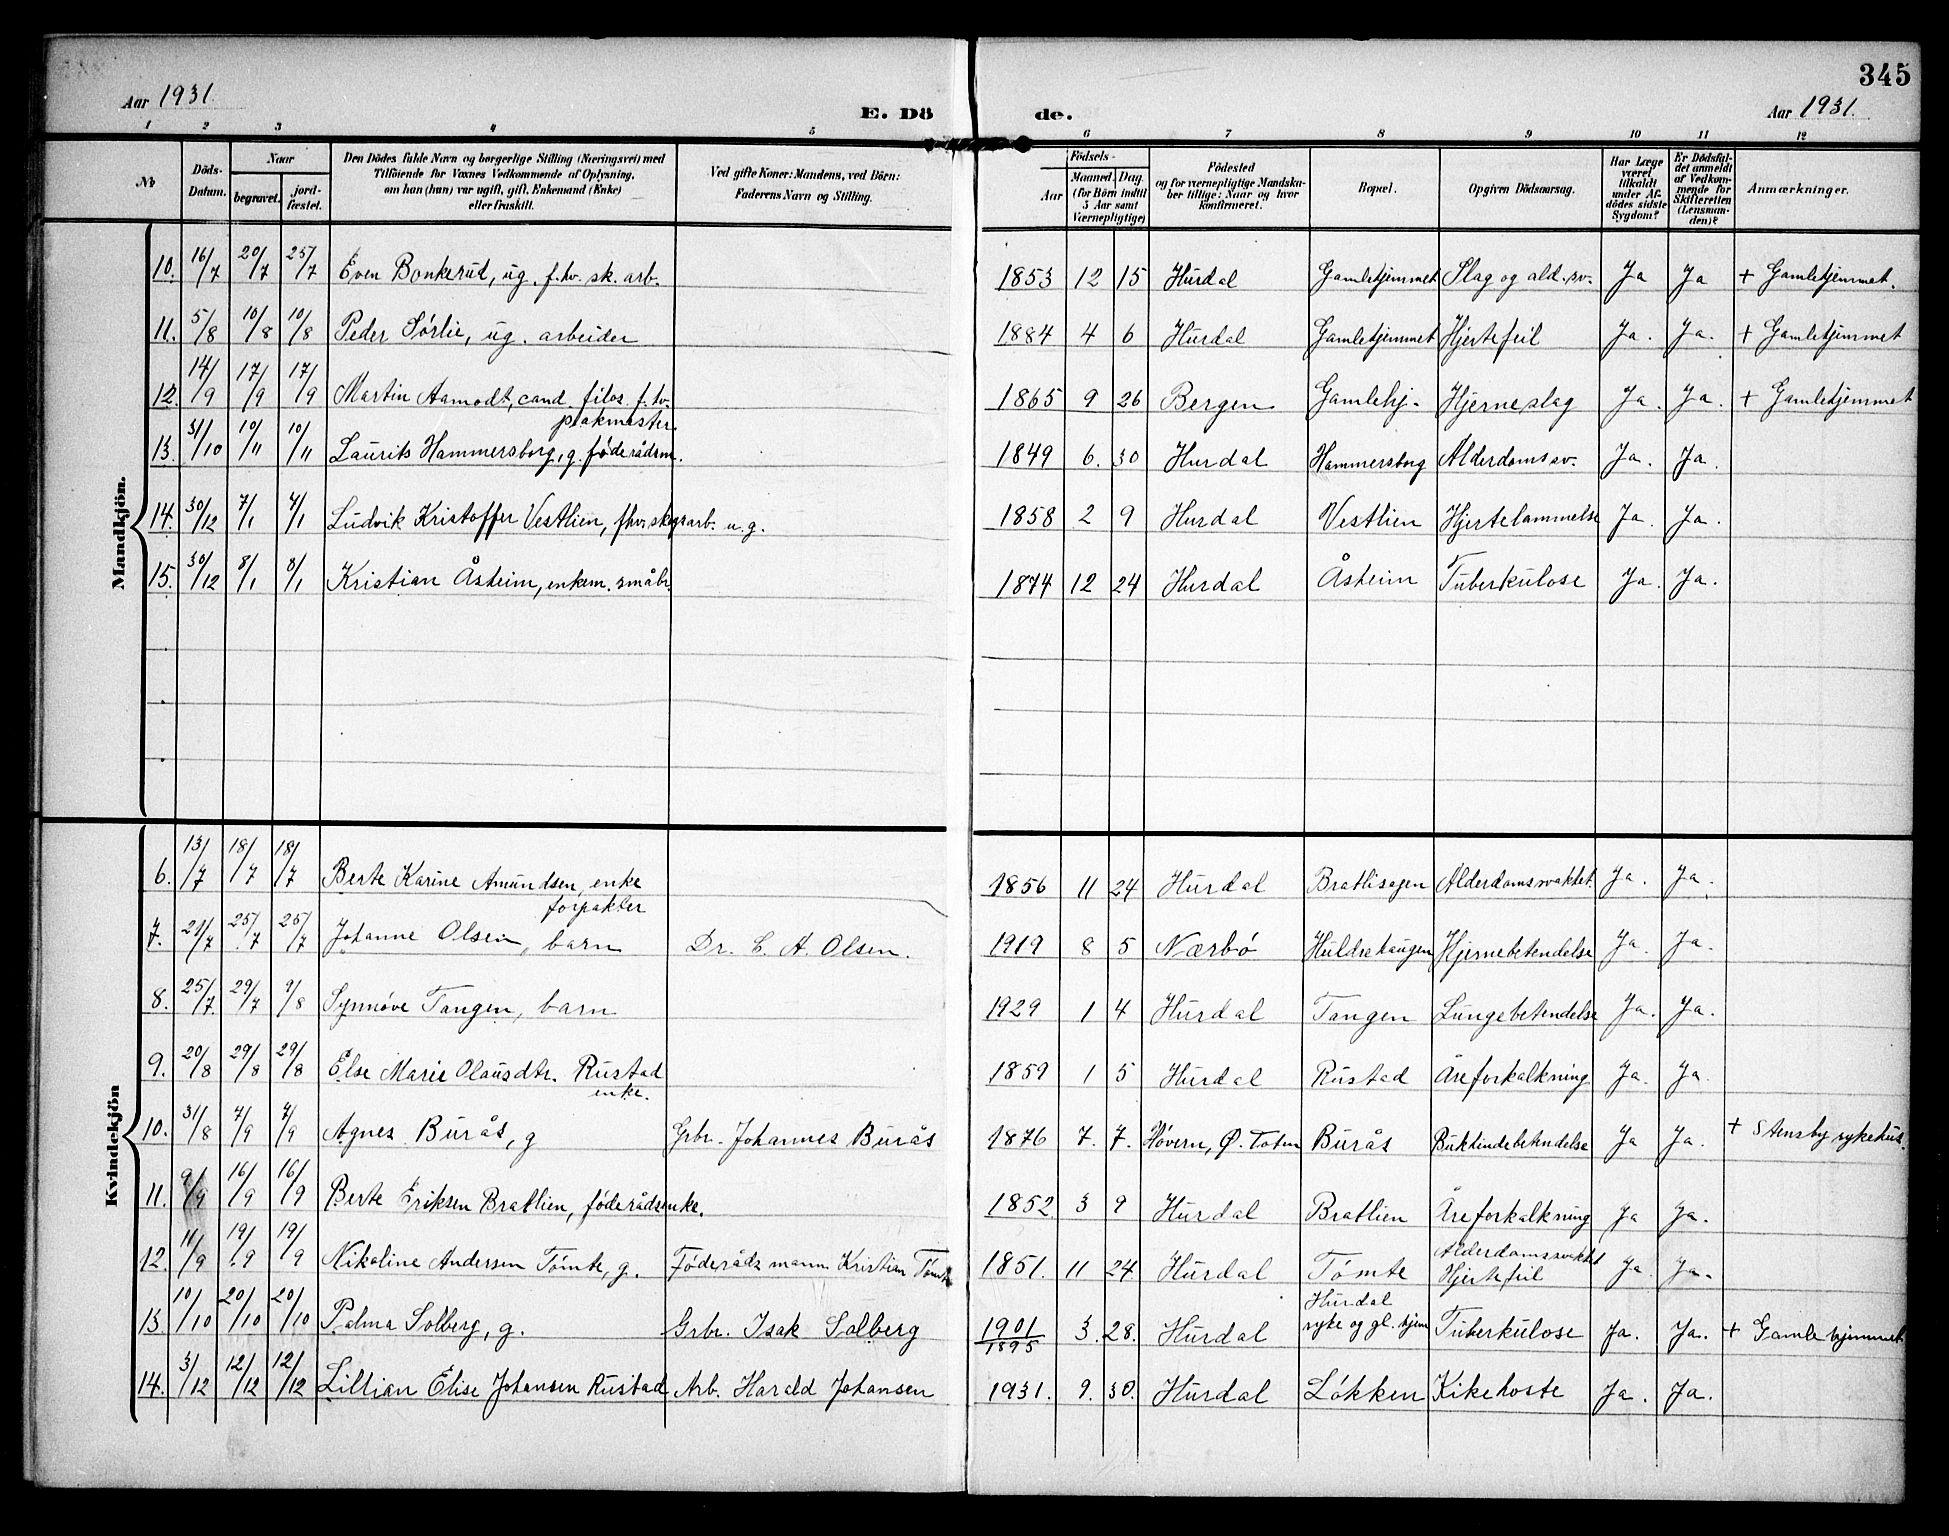 345
Aar 1931.
E. Dö
de.
Aar 1931.
1 2 3 4 5 6 7 8 9 10 11 12
No
Döds-Datum.
Naar
begravet.
jord-fæstet.
Den Dödes fulde Navn og borgerlige Stilling (Næringsvei) med
Tilföiende for Voxnes Vedkommende af Oplysning,
om han (hun) var ugift, gift, Enkemand (Enke)
eller fraskilt.
Ved gifte Koner: Mandens, ved Börn:
Faderens Navn og Stilling.
Födsels-
Aar
Maaned. Dag.
(for Börn indtil
5 Aar samt
Værnepligtige)
Födested
og for værnepligtige Mandska-
ber tillige: Naar og hvor
konfirmeret.
Bopæl.
Opgiven Dödsaarsag.
Har Læge
været
tilkaldt
under Af-
dödes sidste
Sygdom?
Er Dödsfal-
det anmeldt
af Vedkom-
mende for
Skifteretten
(Lensman-
den)?
Anmærkninger.
Mandkjön.
10. 16/7 20/7 25/7 Even Bonkerud, ug. f.hv. sk. arb. 1853 12 15 Hurdal Gamlehjemmet Slag og ald. sv. Ja Ja + Gamlehjemmet.
11. 5/8 10/8 10/8 Peder Sørlie, ug. arbeider 1884 4 6 Hurdal Gamlehjemmet Hjertefeil Ja. Ja. + Gamlehjemmet
12. 14/9 17/9 17/9 Martin Aamodt, cand. filos. f. hv. 1865 9 26 Bergen Gamlehj. Hjerneslag Ja. Ja. + Gamlehjemmet
13. 31/10 10/11 10/11 Laurits Hammersborg, g. føderådsm. 1849 6. 30 Hurdal Hammersborg Alderdomssv. Ja. Ja.
14. 30/12 7/1 7/1 Ludvik Kristoffer Vestlien, fhv. skogsarb. u.g. 1858 2 9 Hurdal Vestlien Hjertelammelse Ja. Ja.
15. 30/12 8/1 8/1 Kristian Åsheim, enkem. småbr. 1874 12 24 Hurdal Åsheim Tuberkulose Ja. Ja.
Kvindekjön
6. 13/7 18/7 18/7 Berte Karine Amundsen, enke 1856 11 24 Hurdal Bratlisagen Alderdomssvakhet. Ja. Ja.
forpakter
7. 21/7 25/7 25/7 Johanne Olsen, barn Dr. C. A. Olsen. 1919 8 5 Nærbø Huldrehaugen Hjernebetendelse Ja. Ja.
8. 25/7 29/7 9/8 Synnøve Tangen, barn 1929 1 4 Hurdal Tangen Lungebetendelse Ja. Ja.
9. 20/8 29/8 29/8 Else Marie Olausdtr. Rustad 1859 1 5 Hurdal Rustad Åreforkalkning Ja. Ja.
enke.
10. 31/8 4/9 4/9 Agnes Burås, g Grbr. Johannes Burås 1876 7. 7. Høvern, Ø. Toten Burås Bukhindebetendelse Ja Ja. + Stensby sykehus.
11. 9/9 16/9 16/9 Berte Eriksen Bratlien, føderådsenke. 1852 3 9 Hurdal Bratlien Åreforkalkning Ja Ja.
12. 11/9 19/9 19/9 Nikoline Andersen Tømte, g. Føderådsmann Kristian Tømte 1851. 11 24 Hurdal Tømte Alderdomssvakhet Hjertefeil Ja Ja.
13. 10/10 20/10 20/10 Palma Solberg, g. Grbr. Isak Solberg 1901/1895 3. 28. Hurdal Hurdal syke og gl. hjem Tuberkulose Ja. Ja. + Gamlehjemmet
14. 3/12 12/12 12/12 Lillian Elise Johansen Rustad Arb. Harald Johansen 1931. 9. 30. Hurdal Løkken Kikehoste Ja. Ja.